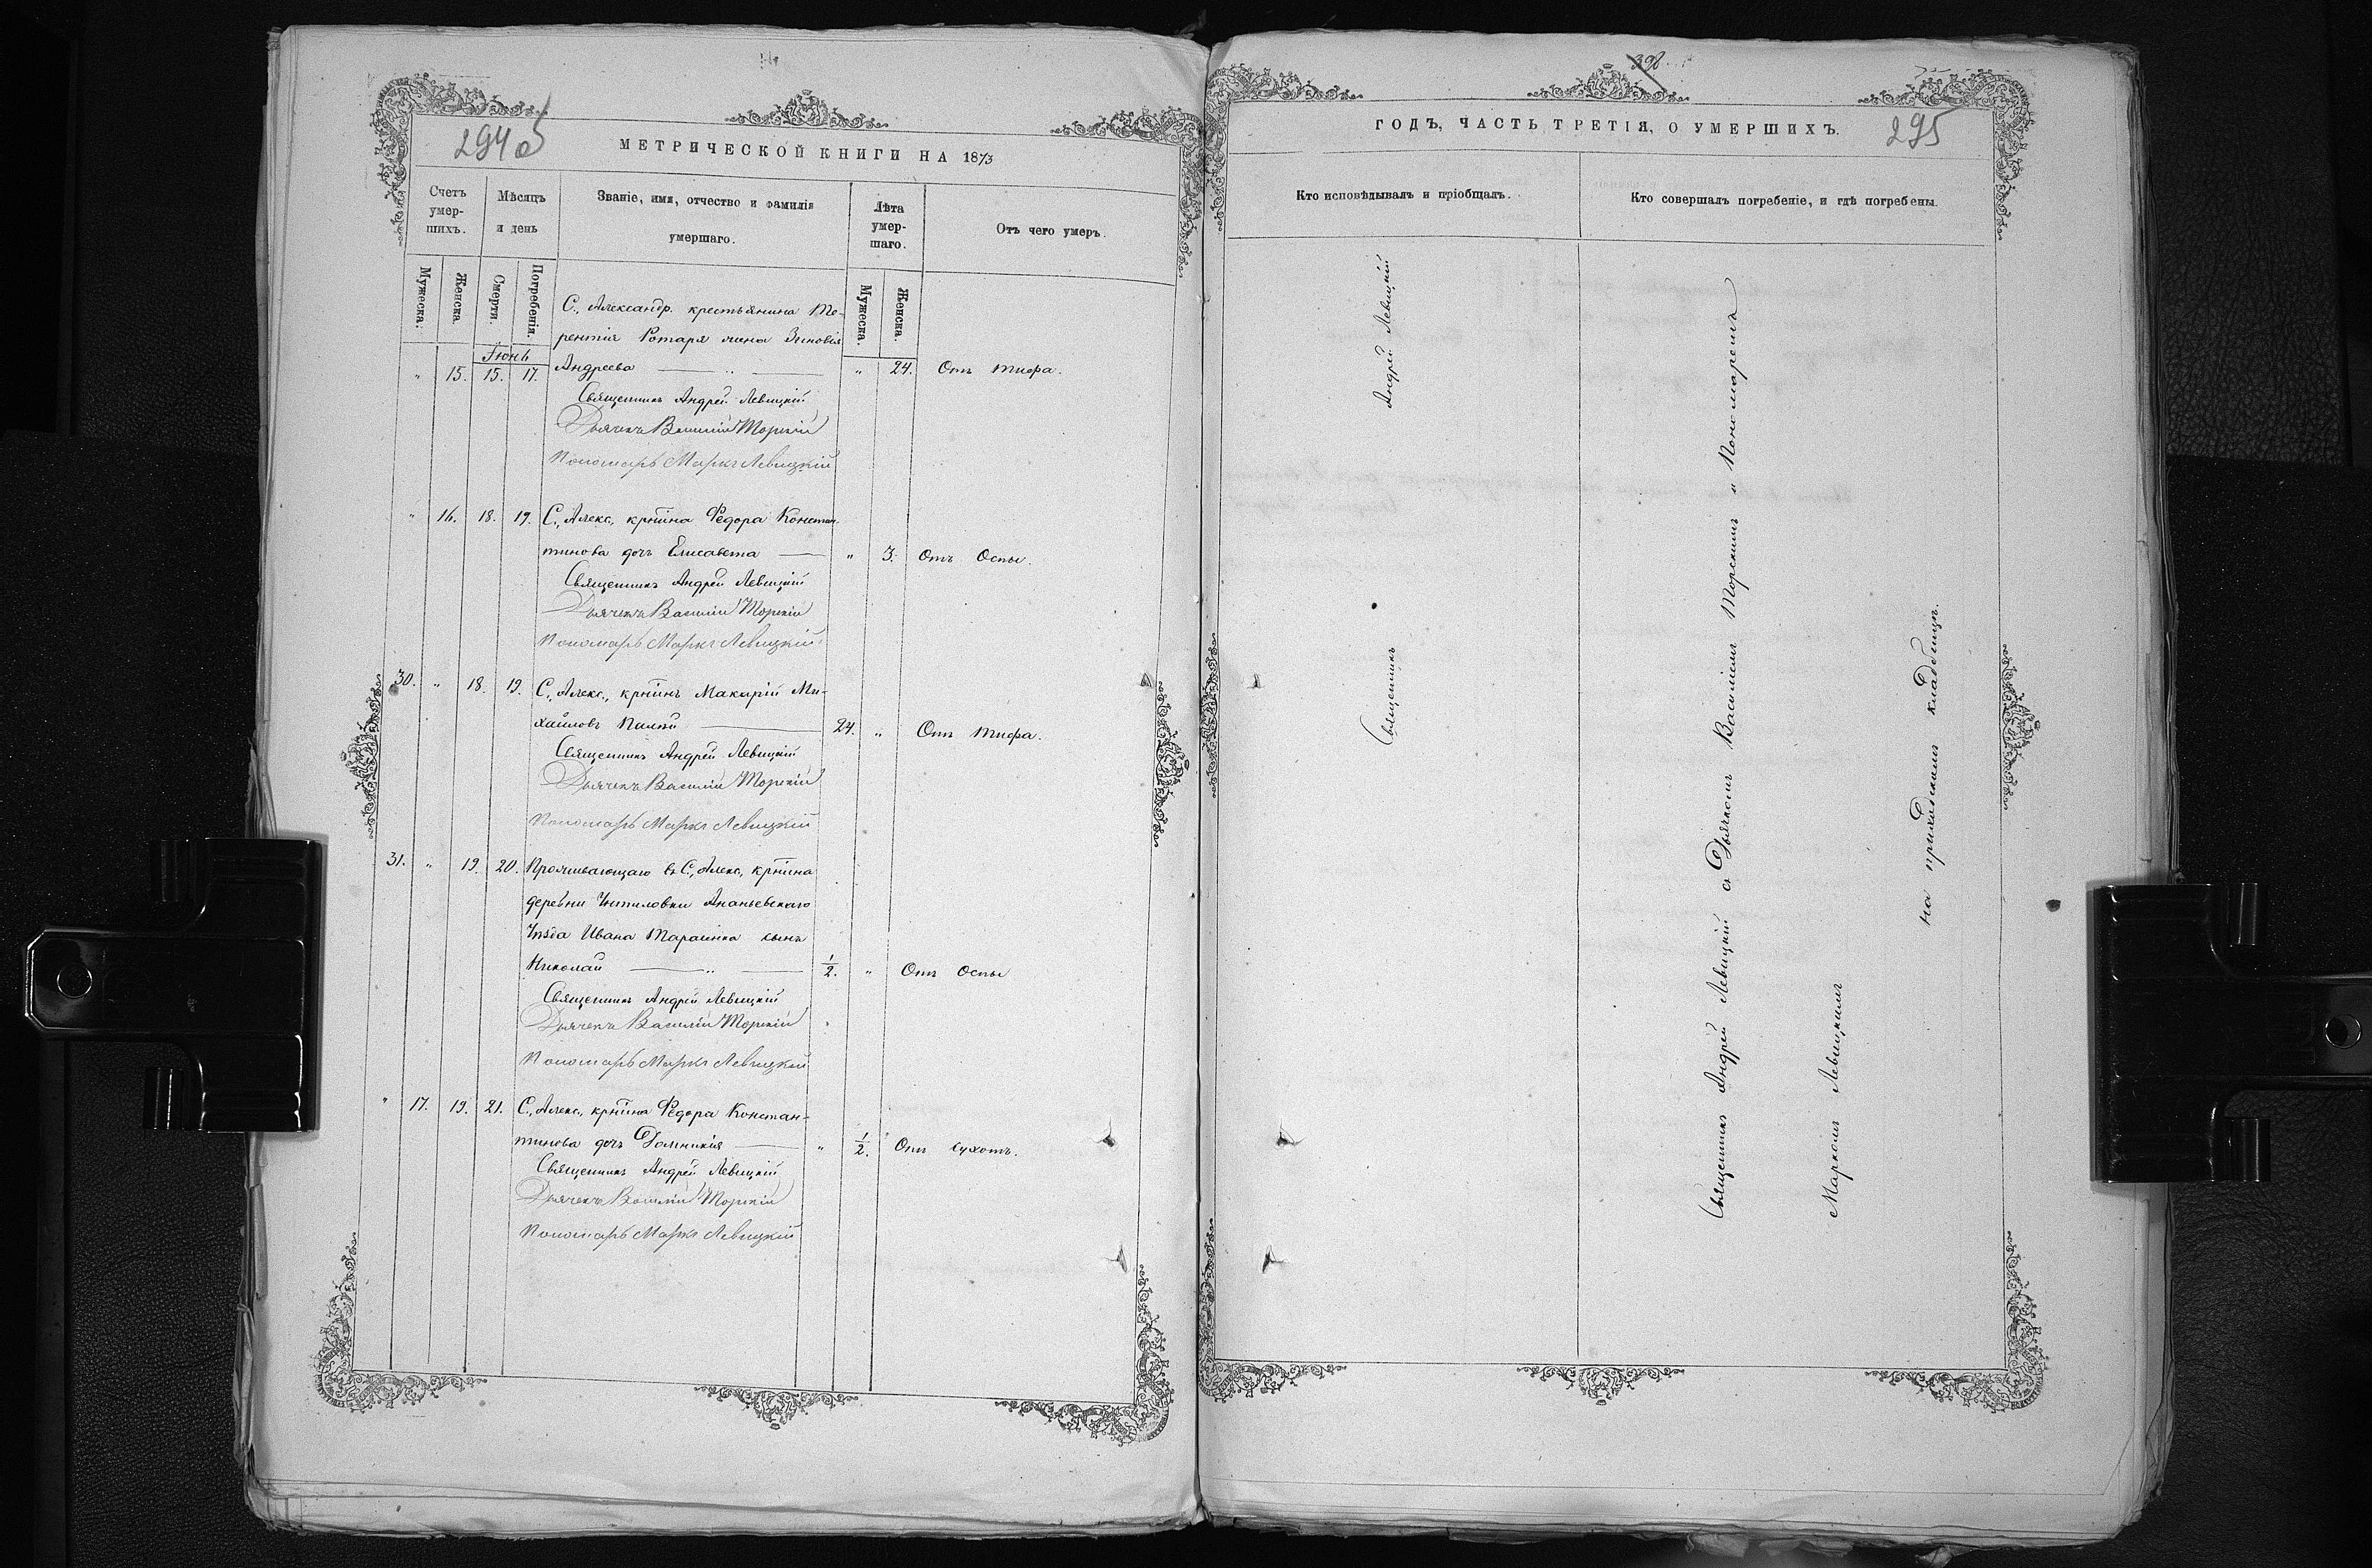 294 об
МЕТРИЧЕСКОЙ КНИГИ НА 1873
Счетъ умер-шихъ.
Мѣсяцъ и день
Званіе, имя, отчество и фамилія умершаго.
Лѣта умер-шаго.
Отъ чего умеръ.
Мужеска.
Женска.
Смерти.
Погребенія.
Мужеска.
Женска.
Іюнь
С., Александр. крестьянина Те-
рентія Ротаря жена Зиновія
„ 15. 15. 17. Андреева „ 24. Отъ тифа.
Священникъ Андрей Левицкій
Дьячекъ Василій Торскій
Пономарь Маркъ Левицкій
„ 16. 18. 19. С., Алекс., крѣнина Федора Констан-
тинова дочь Елисавета „ 3. Отъ Оспы.
Священникъ Андрей Левицкій
Дьячекъ Василій Торскій
Пономарь Маркъ Левицкій
30. „ 18. 19. С., Алекс., крѣнинъ Макарій Ми-
хайловъ 24. „ Отъ тифа.
Священникъ Андрей Левицкій
Дьячекъ Василій Торскій
Пономарь Маркъ Левицкій
31. „ 19. 20. Проживающаго въ С., Алекс., крѣнина
деревни Ананьевскаго
Уѣзда Ивана сынъ
Николай ½. „ Отъ Оспы
Священникъ Андрей Левицкій
Дьячекъ Василій Торскій
Пономарь Маркъ Левицкій
„ 17. 19. 21. С., Алекс., крѣнина Федора Констан-
тинова дочь Домникія „ ½. Отъ сухотъ.
Священникъ Андрей Левицкій
Дьячекъ Василій Торскій
Пономарь Маркъ Левицкій
398
ГОДЪ, ЧАСТЬ ТРЕТІЯ, О УМЕРШИХЪ.
295
Кто исповѣдывалъ и пріобщалъ.
Кто совершалъ погребеніе, и гдѣ погребены.
Священникъ Андрей Левицкій
Священникъ Андрей Левицкій съ Дьячкомъ Василіемъ Торскимъ и Пономаремъ
Маркомъ Левицкимъ
на приходскомъ кладбищѣ.